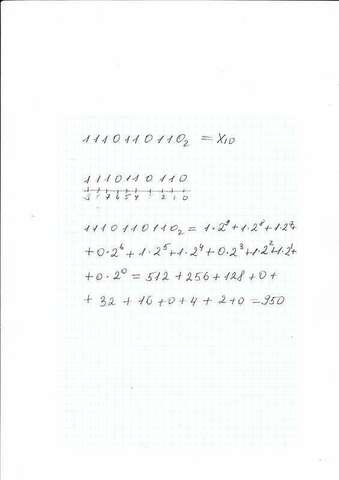 1110110110₂ = X₁₀
1110110110
9 8 7 6 5 4 3 2 1 0
1110110110₂ = 1·2⁹+1·2⁸+1·2⁷+
+0·2⁶+1·2⁵+1·2⁴+0·2³+1·2²+1·2¹+
+0·2⁰ = 512+256+128+0+
+ 32 + 16 +0+4 + 2+0 =950